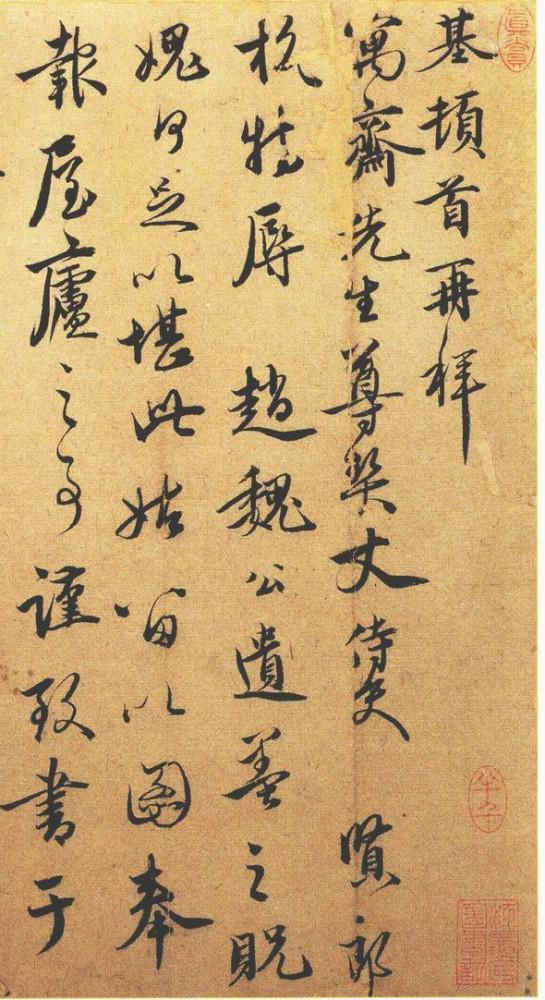 基頓首再拜
寓齋先生尊契丈侍史 賢郎
枉特辱 趙魏公遺墨之貺
媿何足以堪此姑留以圖奉
報屋廬之事謹致書于